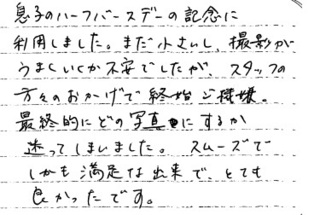 息子のハーフバースデーの記念に
利用しました。まだ小さいし、撮影が
うまくいくか不安でしたが、スタッフの
方々のおかげで終始ご機嫌。
最終的にどの写真にするか
迷ってしまいました。スムーズで
しかも満足な出来で、とても
良かったです。